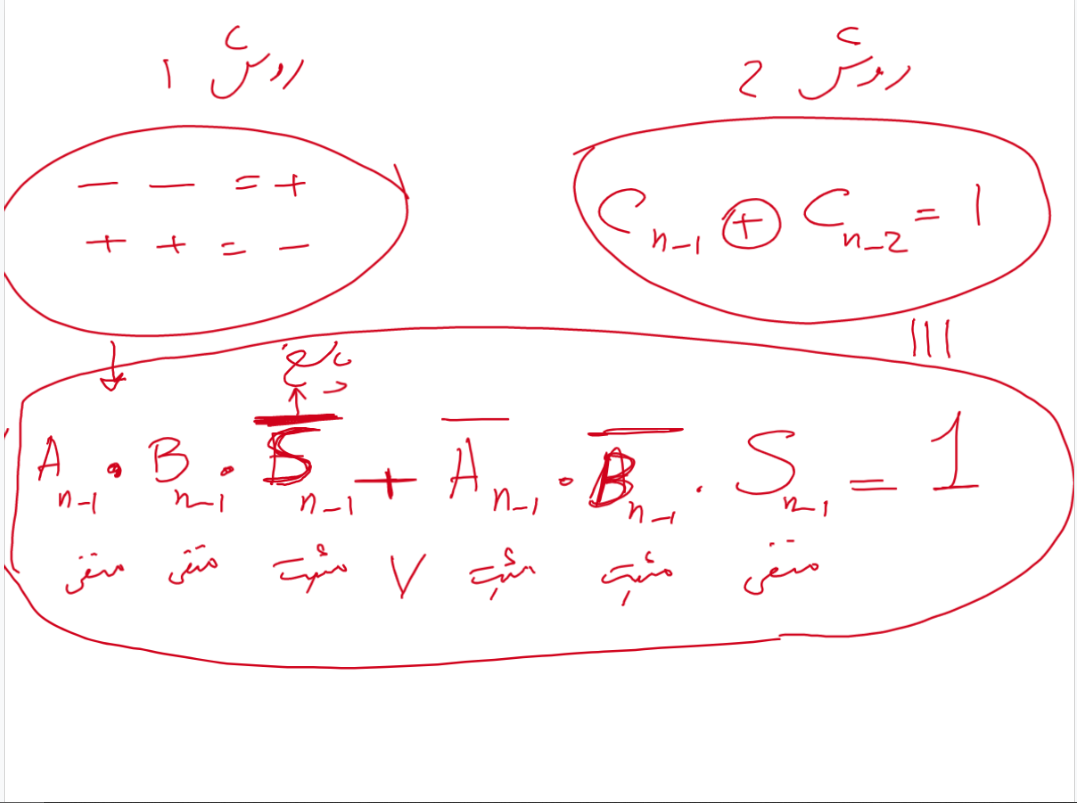 روش ۱
روش 2
— — = +
+ + = −
C_{n-1} ⊕ C_{n-2} = 1
|||
A_{n-1} . B_{n-1} . \overline{S}_{n-1} + \overline{A}_{n-1} . \overline{B}_{n-1} . S_{n-1} = 1
منفی منفی مثبت ∨ مثبت مثبت منفی